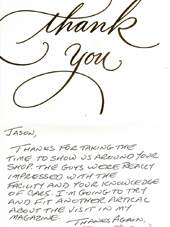 thank
you
JASON,
THANKS FOR TAKING THE
TIME TO SHOW US AROUND YOUR
SHOP. THE GUYS WERE REALLY
IMPRESSED WITH THE
FACILITY AND YOUR KNOWLEDGE
OF CARS. I'M GOING TO TRY
AND FIT ANOTHER ARTICAL
ABOUT THE VISIT IN MY
MAGAZINE.
THANKS AGAIN,